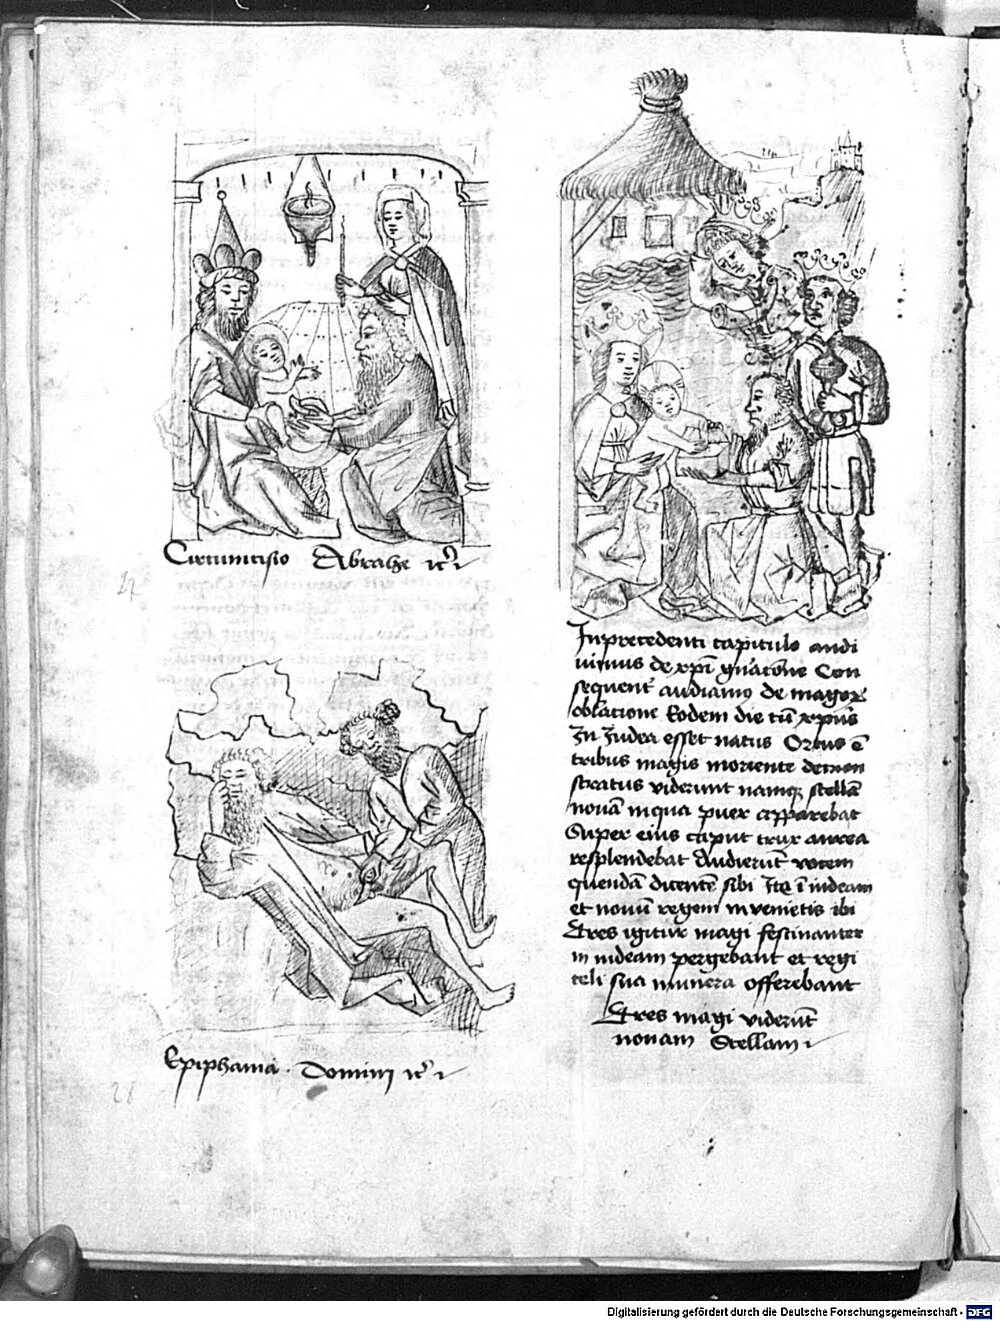 Circumcisio Abrahe
Epiphania . Domini
In precedenti capitulo audi
vimus de xpi gnacõne Con
sequent̛ audiamo de magoꝝ
oblacione Eodem die cũ xpus
In Judea esset natus Ortus ẽ
tribus magis in oriente demon
stratus viderunt namqꝫ stellã
nouã in qua puer apparebat
Super eius caput crux aurea
resplendebat Audierũt vocem
quendã dicentẽ sibi Ite ĩ iudeam
et nouũ regem invenietis ibi
Tres igitur magi festinanter
in iudeam pergebant et regi
celi sua munera offerebant
Tres magi viderũt
nouam Stellam
Digitalisierung gefördert durch die Deutsche Forschungsgemeinschaft - DFG